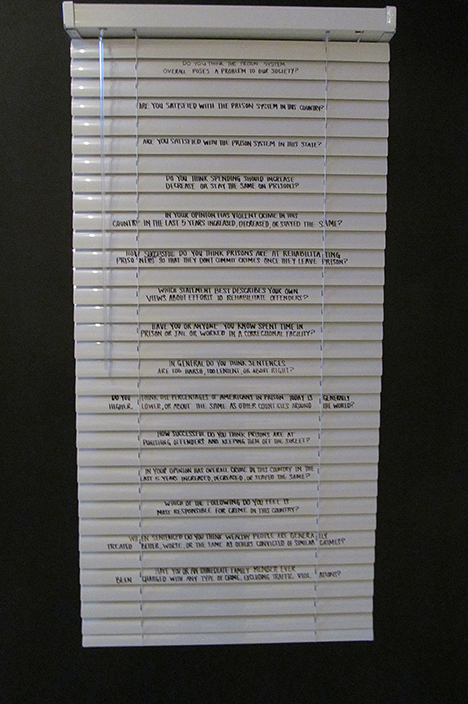 DO YOU THINK THE PRISON SYSTEM
OVERALL POSES A PROBLEM TO OUR SOCIETY?
ARE YOU SATISFIED WITH THE PRISON SYSTEM IN THIS COUNTRY?
ARE YOU SATISFIED WITH THE PRISON SYSTEM IN THIS STATE?
DO YOU THINK SPENDING SHOULD INCREASE
DECREASE OR STAY THE SAME ON PRISONS?
IN YOUR OPINION HAS VIOLENT CRIME IN THIS
COUNTRY IN THE LAST 5 YEARS INCREASED, DECREASED, OR STAYED THE SAME?
HOW SUCCESSFUL DO YOU THINK PRISONS ARE AT REHABILITATING
PRISONERS SO THAT THEY DONT COMMIT CRIMES ONCE THEY LEAVE PRISON?
WHICH STATEMENT BEST DESCRIBES YOUR OWN
VIEWS ABOUT EFFORTS TO REHABILITATE OFFENDERS?
HAVE YOU OR ANYONE YOU KNOW SPENT TIME IN
PRISON OR JAIL OR WORKED IN A CORRECTIONAL FACILITY?
IN GENERAL DO YOU THINK SENTENCES
ARE TOO HARSH, TOO LENIENT, OR ABOUT RIGHT?
DO YOU THINK THE PERCENTAGES OF AMERICANS IN PRISON TODAY IS GENERALLY
HIGHER, LOWER, OR ABOUT THE SAME AS OTHER COUNTRIES AROUND THE WORLD?
HOW SUCCESSFUL DO YOU THINK PRISONS ARE AT
PUNISHING OFFENDERS AND KEEPING THEM OFF THE STREET?
IN YOUR OPINION HAS OVERALL CRIME IN THIS COUNTRY IN THE
LAST 5 YEARS INCREASED, DECREASED, OR STAYED THE SAME?
WHICH OF THE FOLLOWING DO YOU FEEL IS
MOST RESPONSIBLE FOR CRIME IN THIS COUNTRY?
WHEN SENTENCED DO YOU THINK WEALTHY PEOPLE ARE GENERALLY
TREATED BETTER, WORSE, OR THE SAME AS OTHERS CONVICTED OF SIMILAR CRIMES?
HAVE YOU OR AN IMMEDIATE FAMILY MEMBER EVER
BEEN CHARGED WITH ANY TYPE OF CRIME, EXCLUDING TRAFFIC VIOLATIONS?